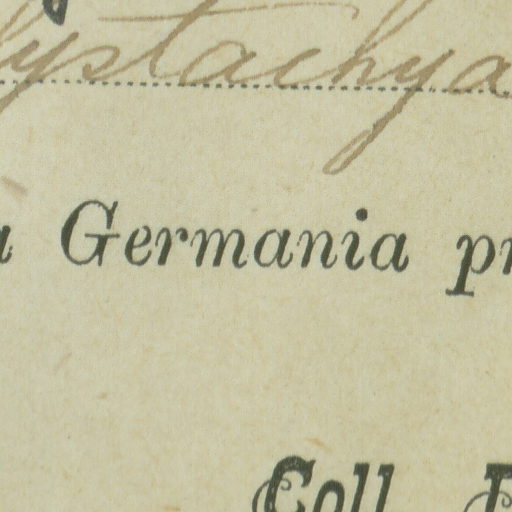 lystachya
a Germania pr
Coll.